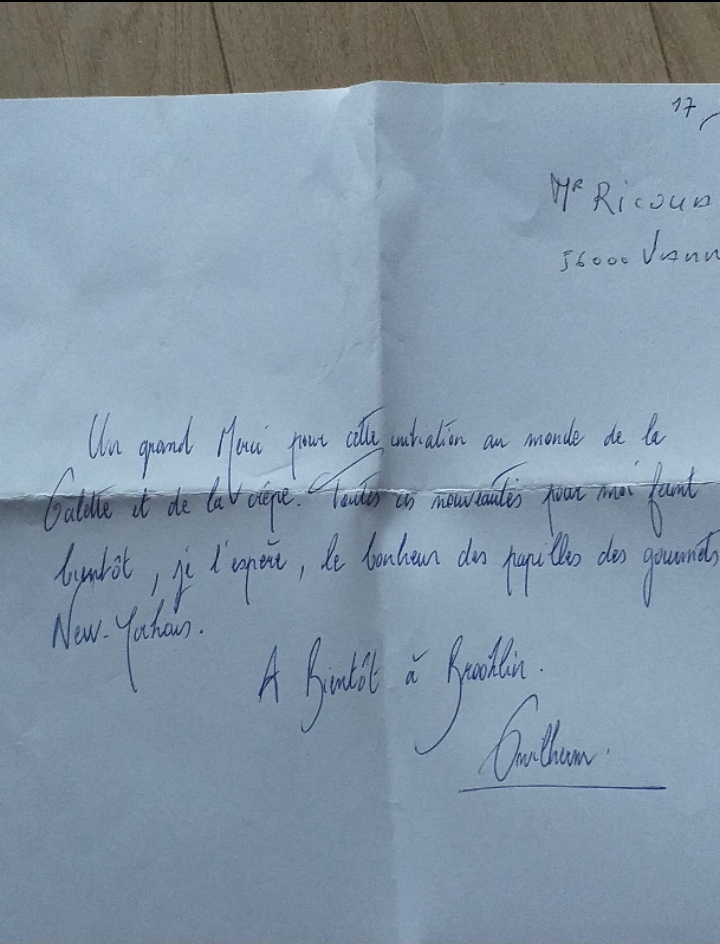 17
Mr RICOUD
56000 VANN
Un grand Merci pour cette initiation au monde de la
Galette et de la crêpe. Toutes ces nouveautés pour moi font
bientôt, je l'espère, le bonheur des papilles des gourmets
New-Yorkais.
A Bientôt à Brooklin.
Guilhem.